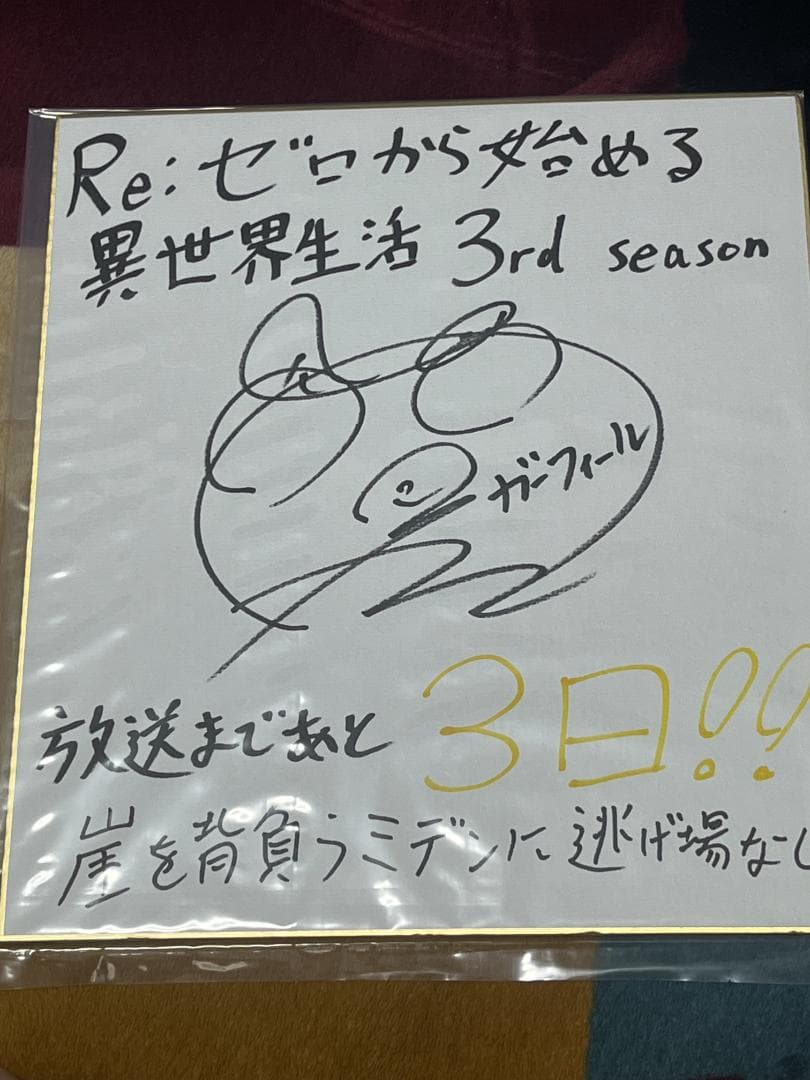 Re:ゼロから始める
異世界生活 3rd season
ガーフィール
放送まであと 3日!!
崖を背負うミデンに逃げ場なし